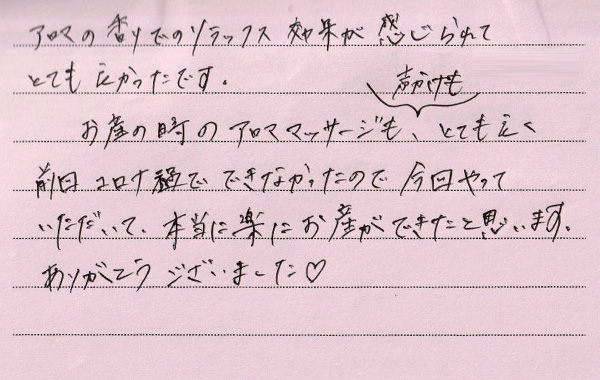 アロマの香りでのリラックス効果が感じられて
とても良かったです。
声かけも
お産の時のアロママッサージも、とても良く
前回コロナ禍でできなかったので今回やって
いただいて、本当に楽にお産ができたと思います。
ありがとうございました♡